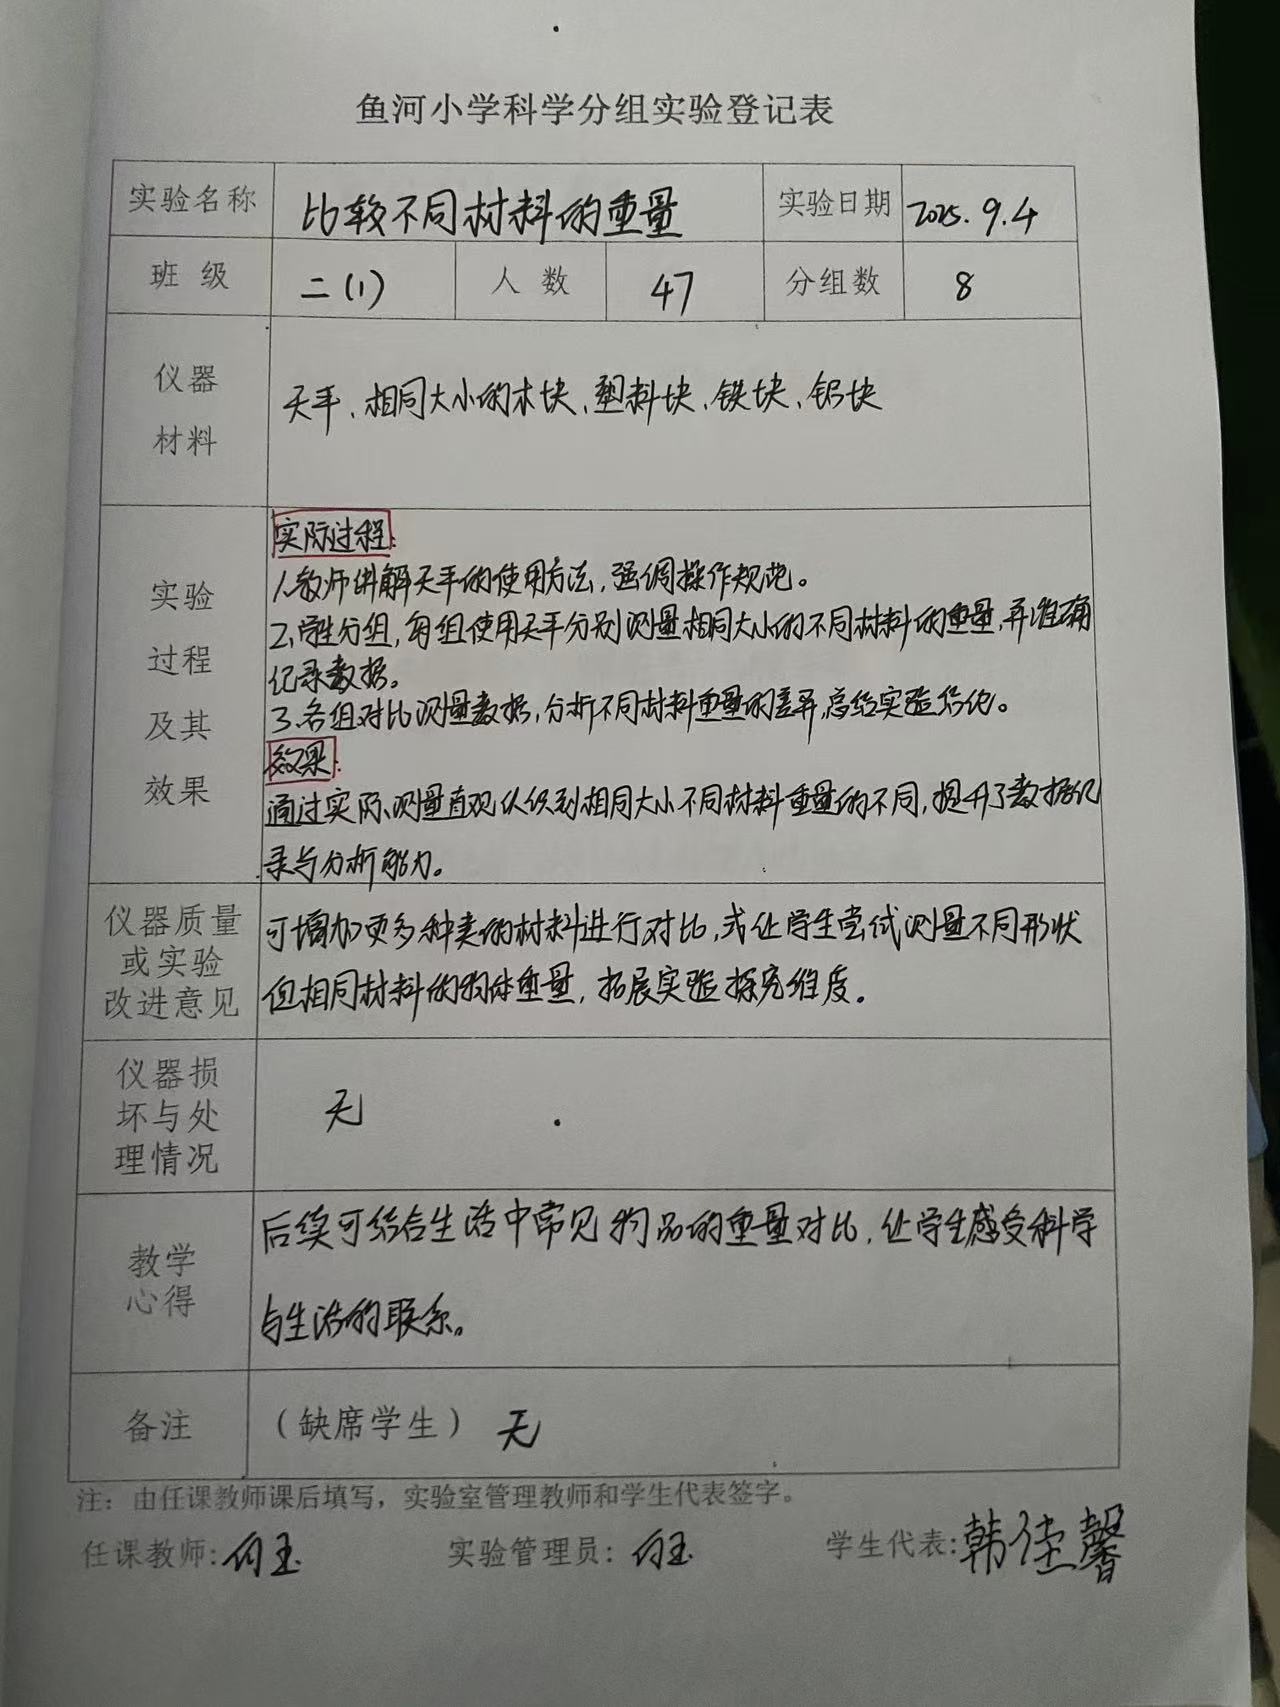 鱼河小学科学分组实验登记表
实验名称 比较不同材料的重量 实验日期 2025.9.4
班级 二(1) 人数 47 分组数 8
仪器
材料
天平、相同大小的木块、塑料块、铁块、铝块
实验
过程
及其
效果
实际过程:
1.教师讲解天平的使用方法,强调操作规范。
2.学生分组,每组使用天平分别测量相同大小的不同材料的重量,并准确
记录数据。
3.各组对比测量数据,分析不同材料重量的差异,总结实验结论。
效果:
通过实际测量直观认识到相同大小不同材料重量的不同,提升了数据记
录与分析能力。
仪器质量
或实验
改进意见
可增加更多种类的材料进行对比,或让学生尝试测量不同形状
但相同材料的物体重量,拓展实验探究维度。
仪器损
坏与处
理情况
无
教学
心得
后续可结合生活中常见物品的重量对比,让学生感受科学
与生活的联系。
备注 (缺席学生) 无
注:由任课教师课后填写,实验室管理教师和学生代表签字。
任课教师: 何玉 实验管理员: 何玉 学生代表: 韩佳馨